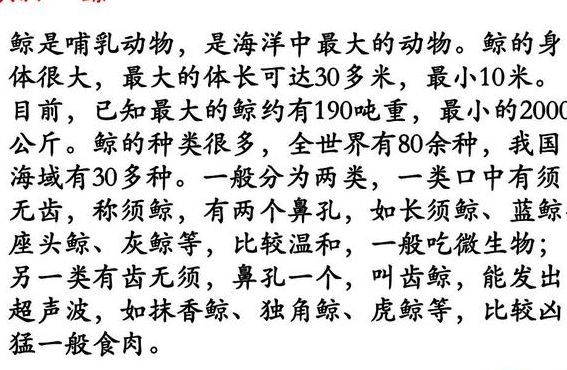 鲸是哺乳动物，是海洋中最大的动物。鲸的身
体很大，最大的体长可达30多米，最小10米。
目前，已知最大的鲸约有190吨重，最小的2000
公斤。鲸的种类很多，全世界有80余种，我国
海域有30多种。一般分为两类，一类口中有须
无齿，称须鲸，有两个鼻孔，如长须鲸、蓝鲸、
座头鲸、灰鲸等，比较温和，一般吃微生物；
另一类有齿无须，鼻孔一个，叫齿鲸，能发出
超声波，如抹香鲸、独角鲸、虎鲸等，比较凶
猛一般食肉。